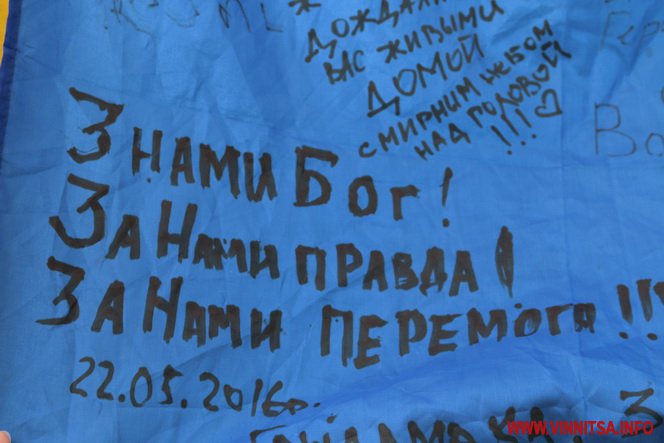 ДОЖДАЛИ
ВАС ЖИВЫМИ
ДОМОЙ
С МИРНИМ НЕБОМ
НАД ГОЛОВОЙ
!!!
З НАМИ БОГ!
ЗА НАМИ ПРАВДА!
ЗА НАМИ ПЕРЕМОГА!!!
22.05.2016г.
WWW.VINNITSA.INFO